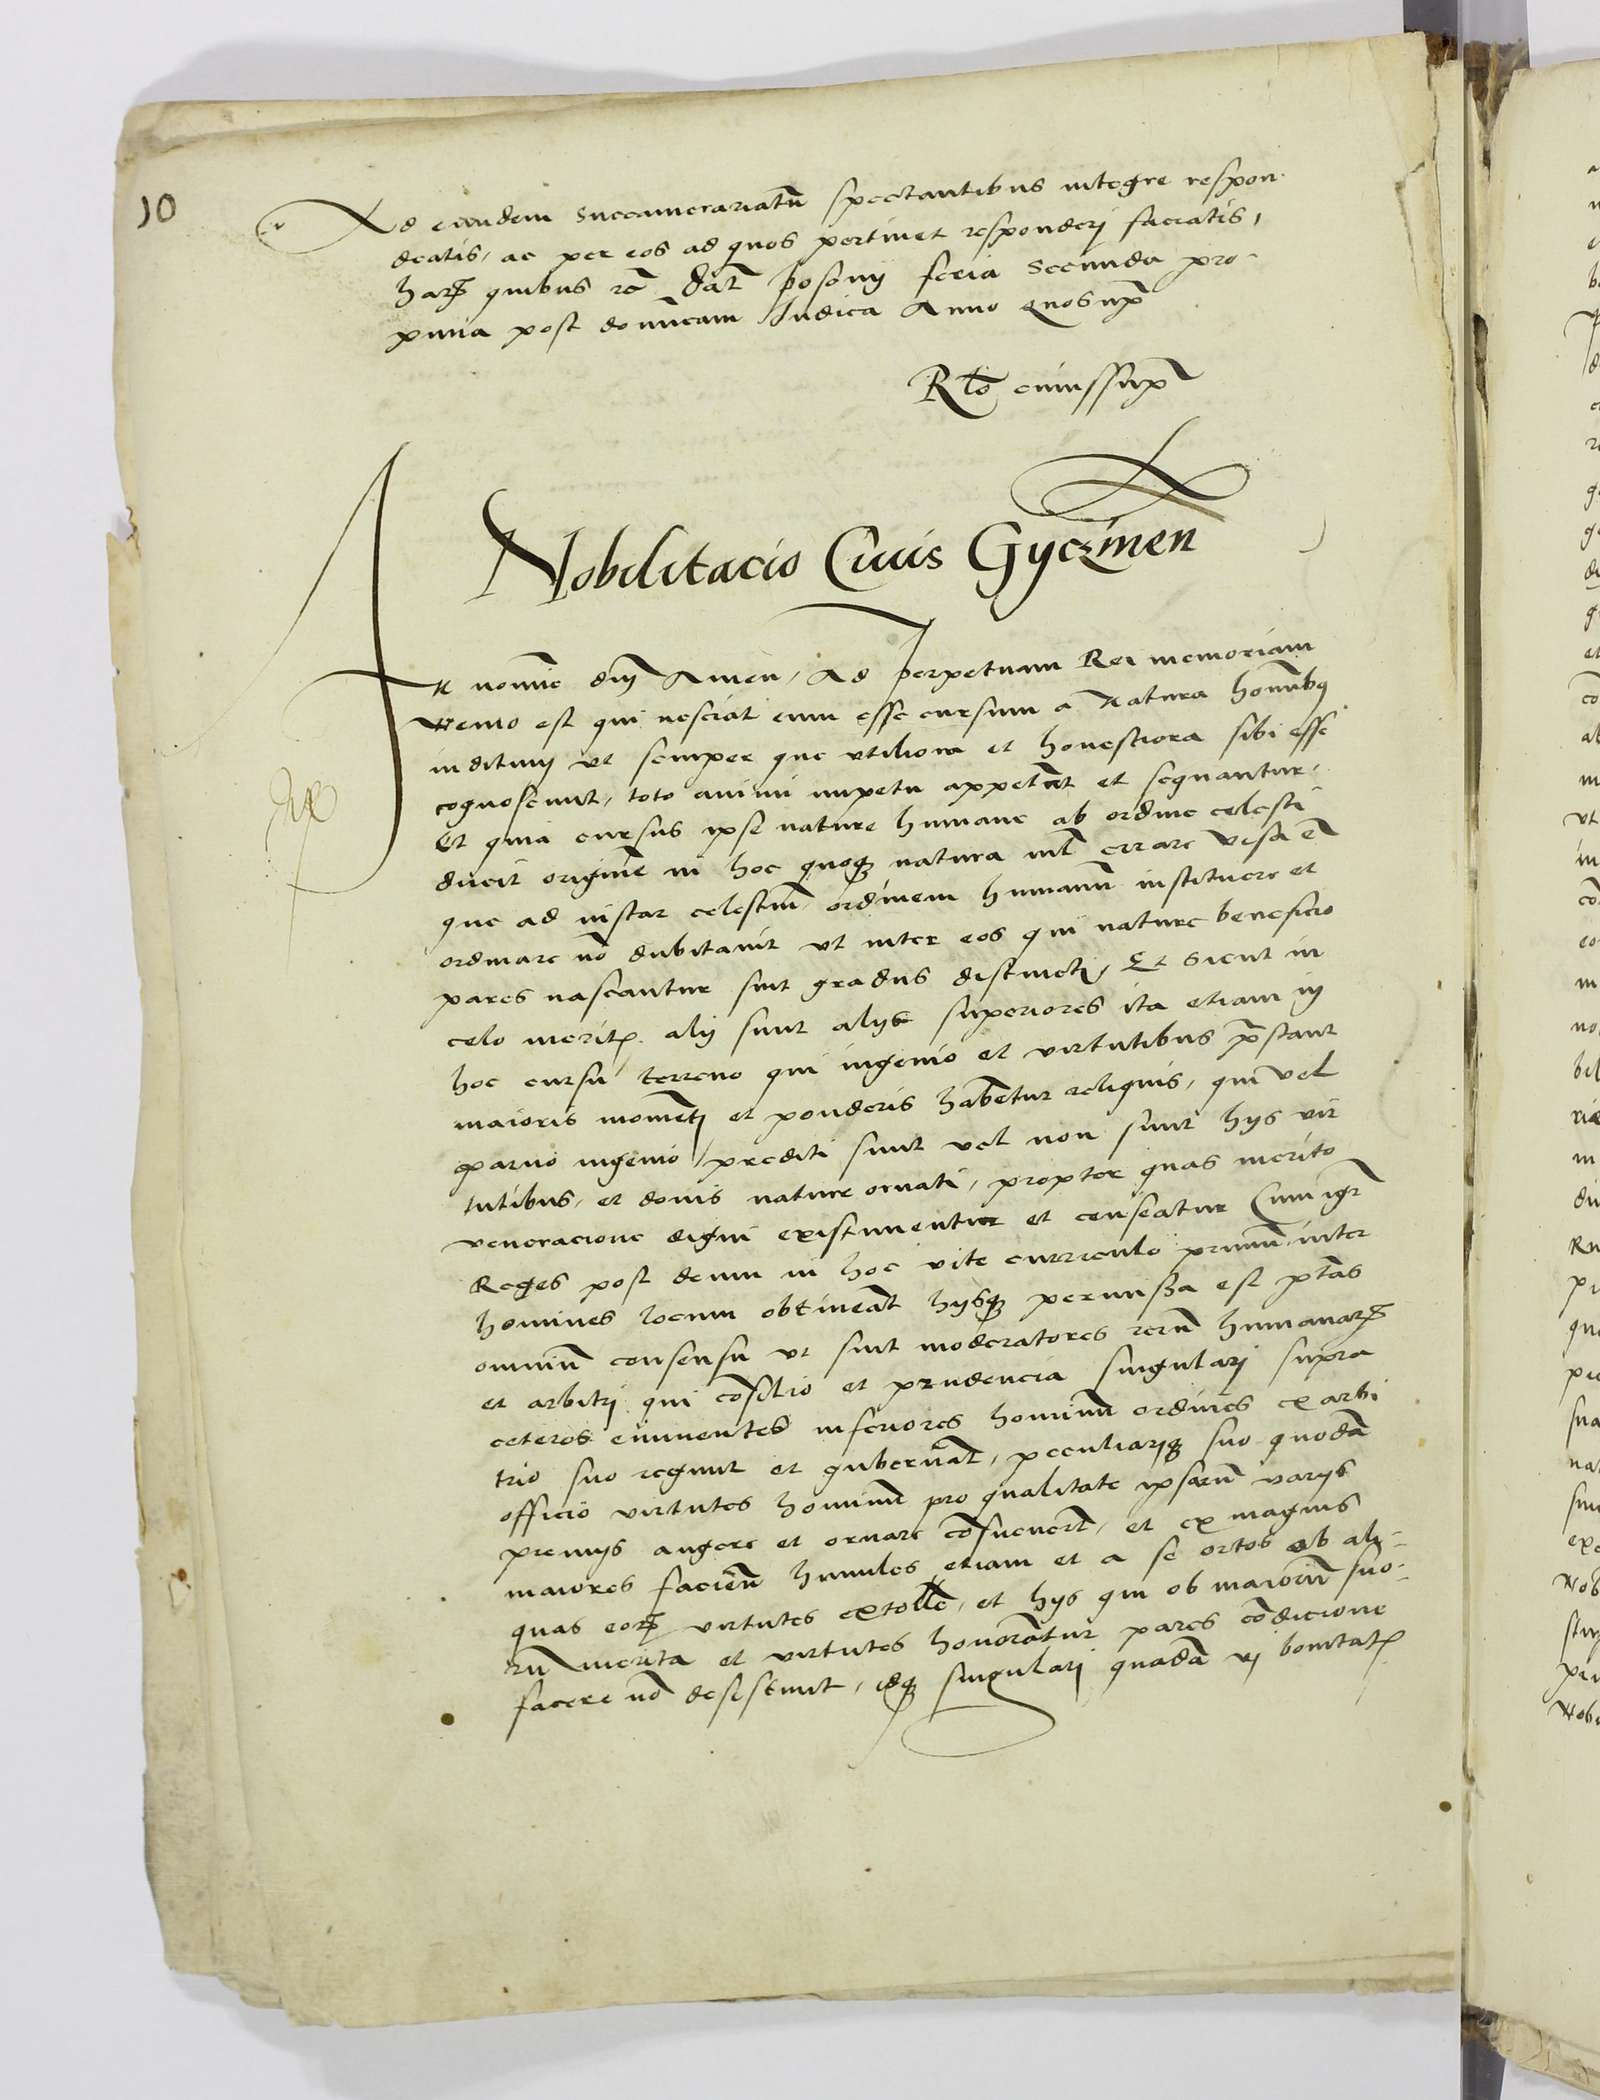 10
Ad eundem Succamerariatū spectantibus integre respon-
deatis, ac per eos ad quos pertinet responderj faciatis,
harꝫ quibus rc̄ Dat̄ posonij feria Secunda pro-
xima post domīcam Judica Anno quosup̄
Rtō cuiussup̄
Nobilitacio Ciuis Gyczmen
In nomīe dnj̄ Amen, Ad perpetuam Rei memoriam
Nemo est qui nesciat eum esse cursum a Natura hominībꝫ
inditum vt semper que vtiliora et honestiora sibi esse
cognoscunt, toto animi impetu appetāt et sequantur,
Et quia cursus ipse nature humane ab ordine celesti
ducit originē in hoc quoqꝫ natura nil̄ errare visa ē
que ad instar celestiū ordinem humanū instituere et
ordinare nō dubitauit vt inter eos qui nature beneficio
pares nascantur sint gradus distinctj, Et Sicut in
celo meritꝭ alij sunt alijs superiores ita etiam in
hoc cursu terreno qui ingenio et virtutibus p̄stant
maioris momētj et ponderis habētur reliquis, qui vel
paruo ingenio prediti sunt vel non sunt hijs vir
tutibus, et donis nature ornati, propter quas merito
veneracione digni existimentur et censeātur Cum igr̄
Reges post deum in hoc vite curriculo primum inter
homines locum obtineāt hijsqꝫ permissa est ptās
omnium consensu vt sint moderatores rerū humanarꝫ
et arbitrj qui cōsilio et prudencia singularj supra
ceteros eminentes inferiores hominū ordines ex arbi
trio suo regunt et gubernāt, peculiarjqꝫ suo quodā
officio virtutes hominū pro qualitate ipsarū varijs
premijs augere et ornare cōsueuerūt, et ex magnis
maiores faciūt humiles etiam et a se ortos ob ali-
quas eorꝫ virtutes extollē, et hijs qui ob maiorū suo-
rū merita et virtutes honorātur pares cōdicione
facere nō desistunt, idqꝫ singularj quadā vj bonitatꝭ